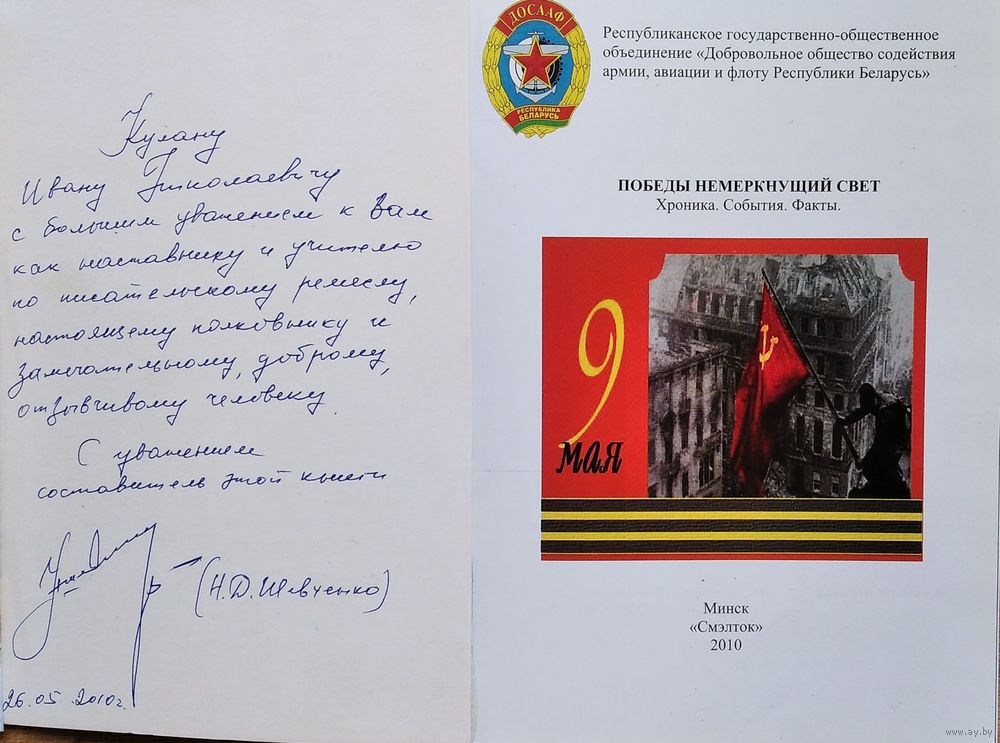 Кулану
Ивану Николаевичу
с большим уважением к Вам
как наставнику и учителю
по писательскому ремеслу,
настоящему полковнику и
замечательному, доброму,
отзывчивому человеку.
С уважением
составитель этой книги
(Н.Д. Шевченко)
26.05.2010г.
ДОСААФ
РЕСПУБЛИКА
БЕЛАРУСЬ
Республиканское государственно-общественное
объединение «Добровольное общество содействия
армии, авиации и флоту Республики Беларусь»
ПОБЕДЫ НЕМЕРКНУЩИЙ СВЕТ
Хроника. События. Факты.
9
МАЯ
Минск
«Смэлток»
2010
www.ay.by